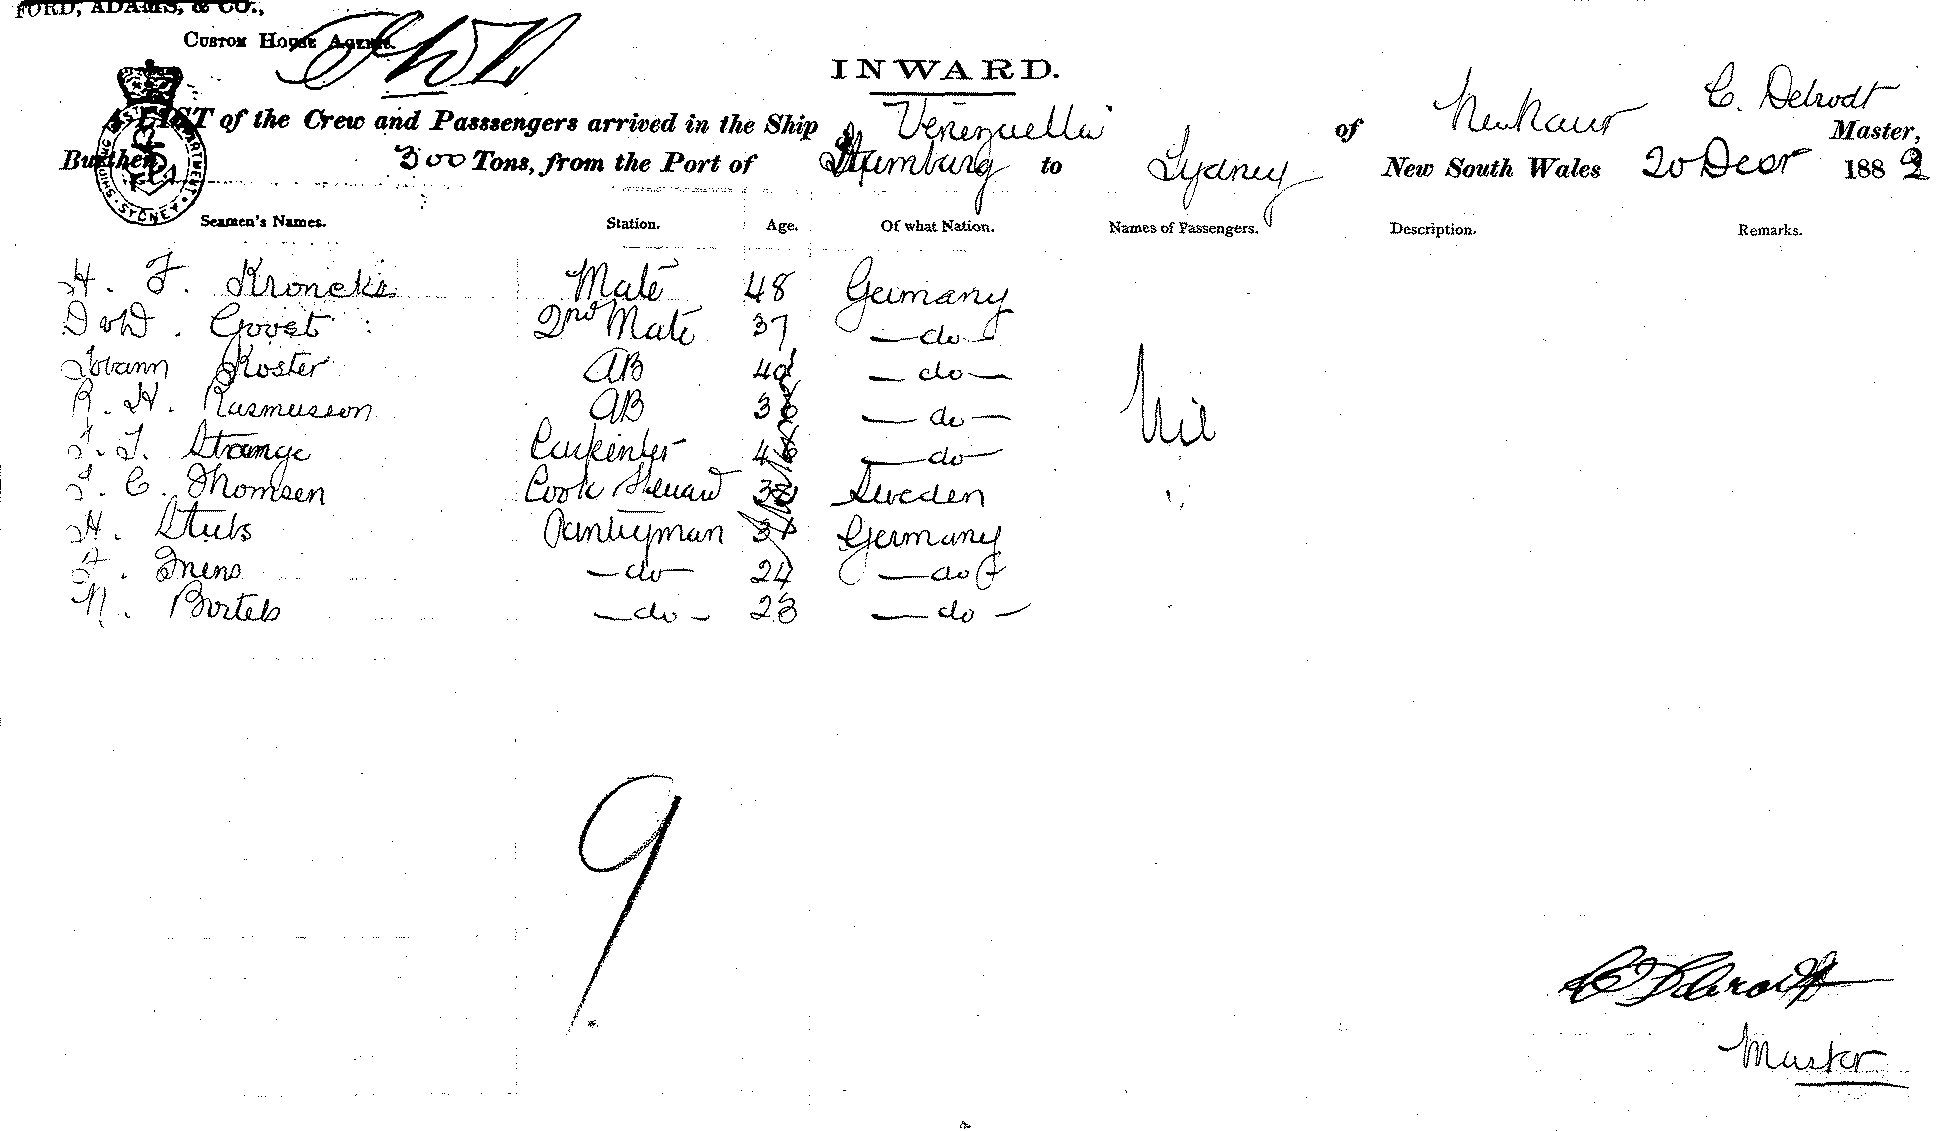 FORD, ADAMS, & CO.,
CUSTOM HOUSE AGENTS.
INWARD.
A LIST of the Crew and Passsengers arrived in the Ship Venezuella of C. Delrodt Master,
Burthen 300 Tons, from the Port of Hamburg to Sydney New South Wales 20 Decr 1882
SHIPPING MASTERS DEPARTMENT SYDNEY
Seamen's Names. Station. Age. Of what Nation. Names of Passengers. Description. Remarks.
H. F. Mate 48 Germany
2nd Mate 37 — do —
Johann Koster AB — do —
R. H. Rasmusson AB — do — Nil
Strange Carpenter — do —
C. Thomsen Cook Steward Sweden
H. Stubs Pantryman Germany
— do — 24 — do —
N. Bartels — do — 23 — do —
9
Master